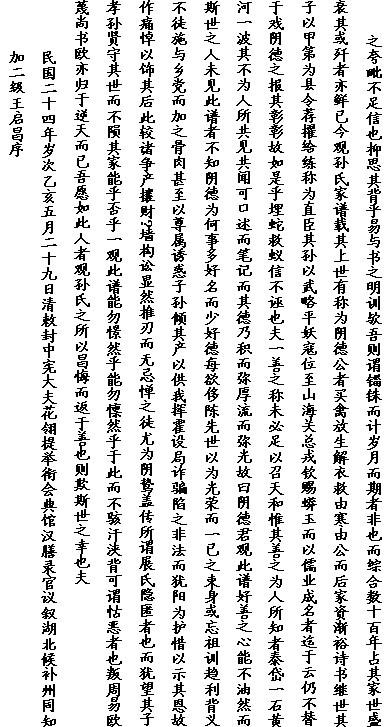 之夸毗不足信也抑思其背乎易与书之明训欤吾则谓镏铢而计岁月而期者非也而综合数十百年占其家世盛
衰其或歼者亦鲜已今观孙氏家谱载其上世有称为阴德公者买禽放生解衣救由寒由公而后家资渐裕诗书继世其
子以甲第为县令荐擢给练称为直臣其孙以武略平妖寇位至山海关总戎钦赐蟒玉而以儒业成名者迄于云仍不替
于戏阴德之报其彰彰故如是乎埋蛇救蚁信不诬也夫一善之称未必足以召天和惟其善之为人所知者泰岱一石黄
河一波其不为人所共见共闻可口述而笔记而其德乃积而弥厚流而弥光故曰阴德君观此谱好善之心能不油然而
斯世之人未见此谱者不知阴德为何事多好名而少好德每欲侈陈先世以为光荣而一已之束身或忘祖训趋利背义
不徒施与乡党而加之骨肉甚至以尊属诱惑子孙倾其产以供我挥霍设局诈骗陷之非法而犹阳为护惜以示其恩故
作痛悼以饰其后此较诸争产攘财?墙构讼显然推刃而无忌惮之徒尤为阴鸷盖传所谓展氏隐匿者也而犹望其子
孝孙贤守其世而不陨其家能乎否乎一观此谱能勿憬然乎能勿懔然乎于此而不骇汗浃背可谓怙恶者也叛周易欧
蔑尚书欧亦归于逆天而已吾愿如此人者观孙氏之所以昌悔而返于善也则欺斯世之幸也夫
民国二十四年岁次乙亥五月二十九日清敕封中宪大夫花翎提举衔会典馆汉膳录官议叙湖北候补州同知
加二级王启昌序